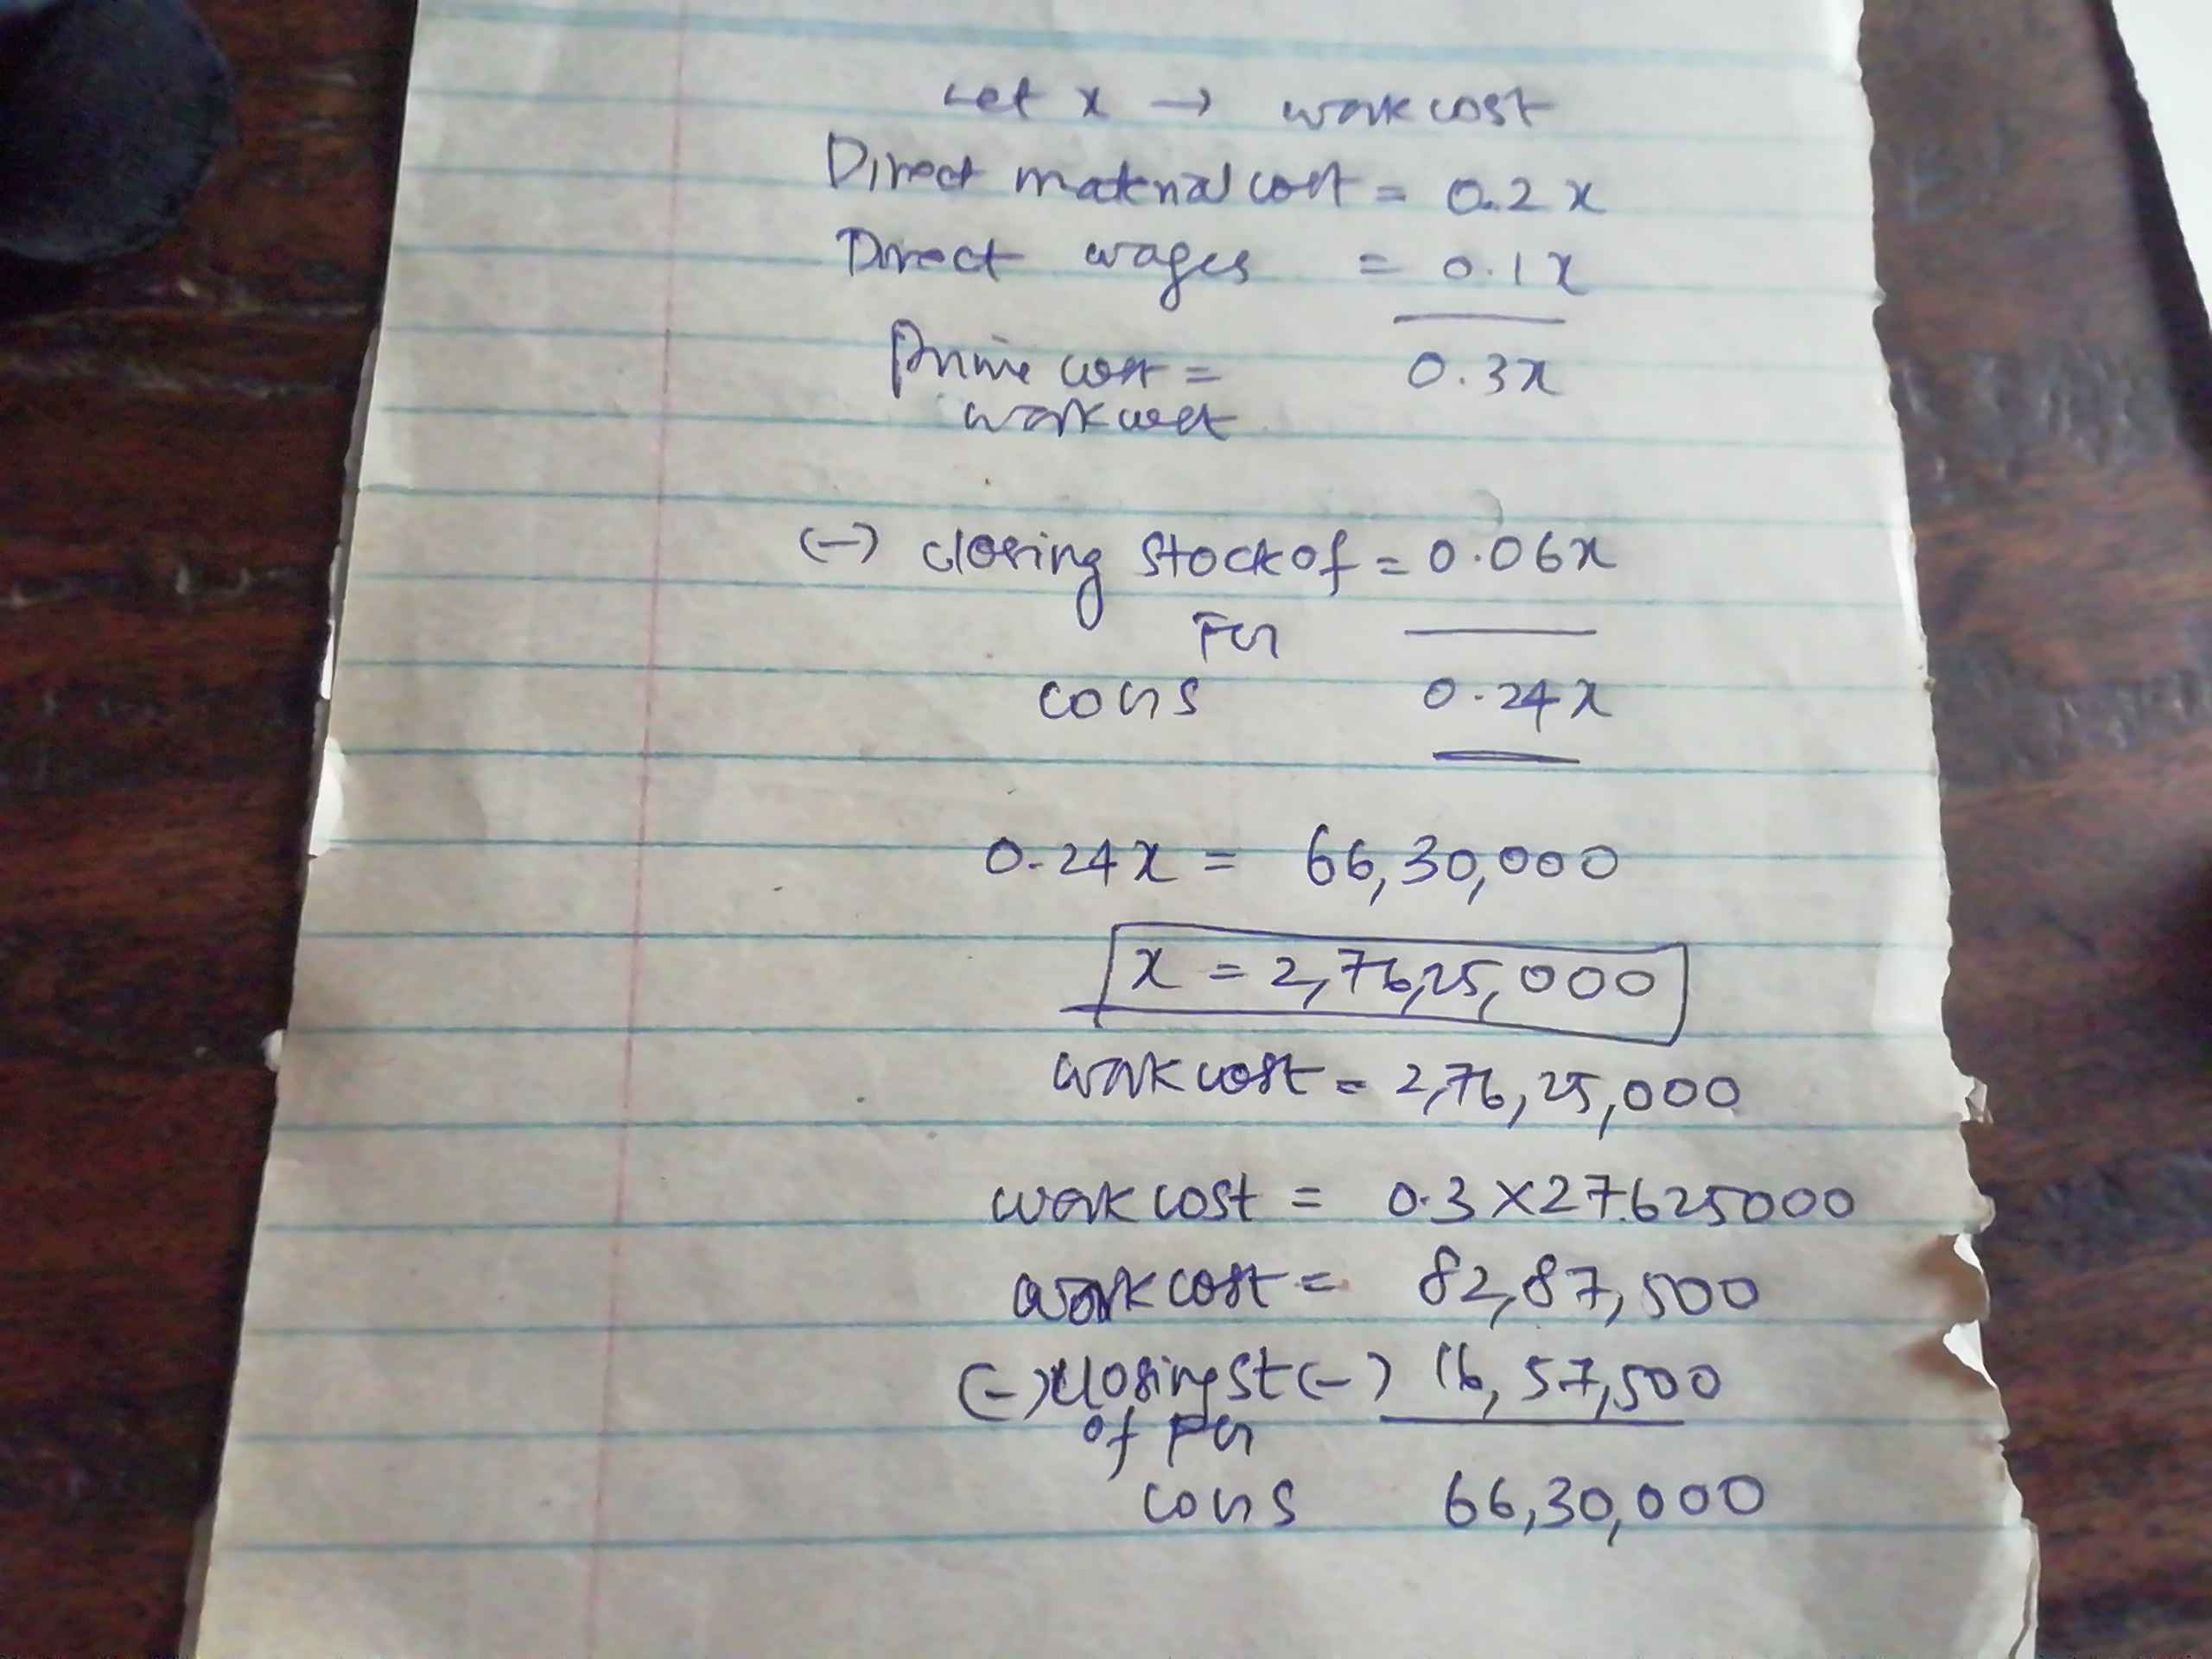 Let x → work cost
Direct material cost = 0.2x
Direct wages = 0.1x
Prime cost = 0.3x
work cost
(-) closing stock of = 0.06x
FG
COGS 0.24x
0.24x = 66,30,000
x = 2,76,25,000
work cost = 2,76,25,000
work cost = 0.3 × 27625000
work cost = 82,87,500
(-) closing st (-) 16,57,500
of FG
COGS 66,30,000